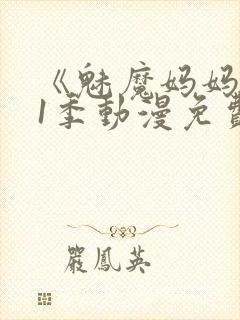 《魅魔妈妈
1季動漫免費
嚴鳳英